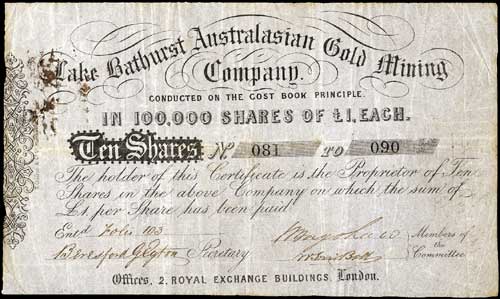 Lake Bathurst Australasian Gold Mining
Company.
CONDUCTED ON THE COST BOOK PRINCIPLE.
IN 100,000 SHARES OF £1, EACH.
Ten Shares No. 081 TO 090
The holder of this Certificate is the Proprietor of Ten
Shares in the above Company on which the sum of
£1 per Share has been paid
Entd. Folio 103
Secretary
Members of
the
Committee
Offices, 2, ROYAL EXCHANGE BUILDINGS, London.